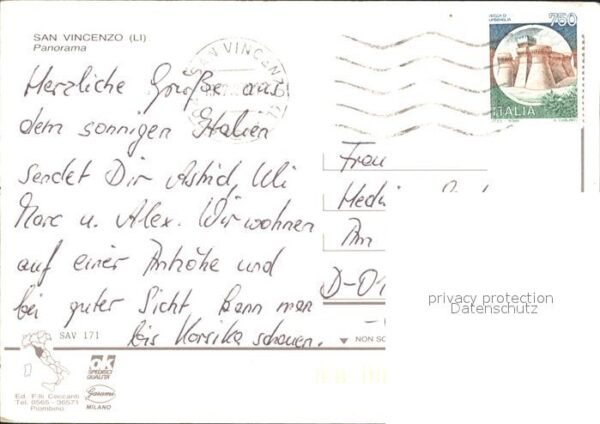 SAN VINCENZO (LI)
Panorama
750
ITALIA
SAN VINCENZO
Herzliche Grüße aus
dem sonnigen Italien
sendet Dir Astrid, Uli
Marc u. Alex. Wir wohnen
auf einer Anhöhe und
bei guter Sicht kann man
bis Korsika schauen.
Frau
Am
D-01
privacy protection
Datenschutz
SAV 171
NON SC
Ed. F.lli Ceccanti
Tel. 0565 - 36571
Piombino
ok
SPEDISCI
QUALITA'
Garami
MILANO